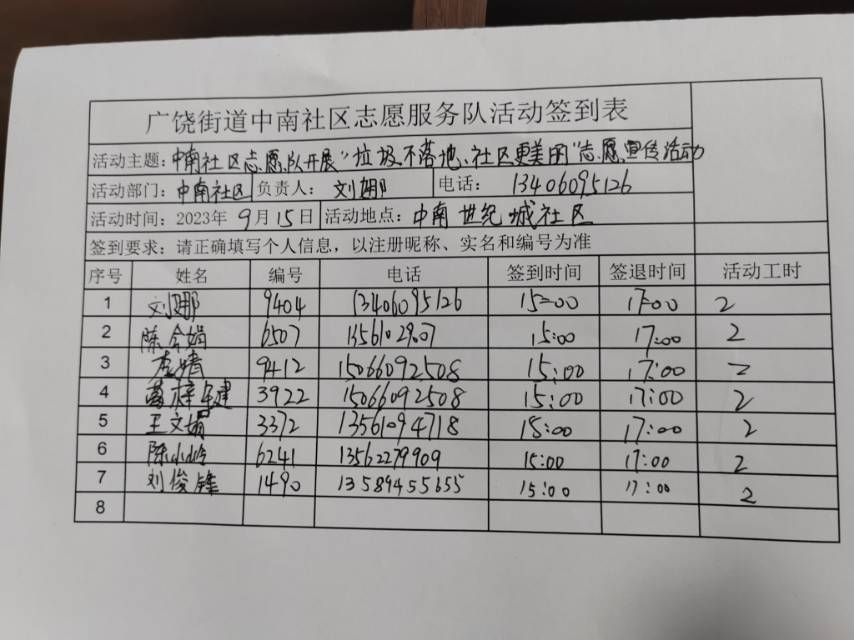 广饶街道中南社区志愿服务队活动签到表
活动主题：中南社区志愿队开展"垃圾不落地、社区更美丽"志愿宣传活动
活动部门：中南社区 负责人：刘娜 电话：13406095126
活动时间：2023年9月15日 活动地点：中南世纪城社区
签到要求：请正确填写个人信息，以注册昵称、实名和编号为准
序号 姓名 编号 电话 签到时间 签退时间 活动工时
1 刘娜 9404 13406095126 15:00 17:00 2
2 陈 娟 6507 15:00 17:00 2
3 9412 15066092508 15:00 17:00 2
4 3922 15066092508 15:00 17:00 2
5 王文娟 3372 13561094718 15:00 17:00 2
6 陈小岭 6241 13562279909 15:00 17:00 2
7 刘俊锋 1490 13589455655 15:00 17:00 2
8